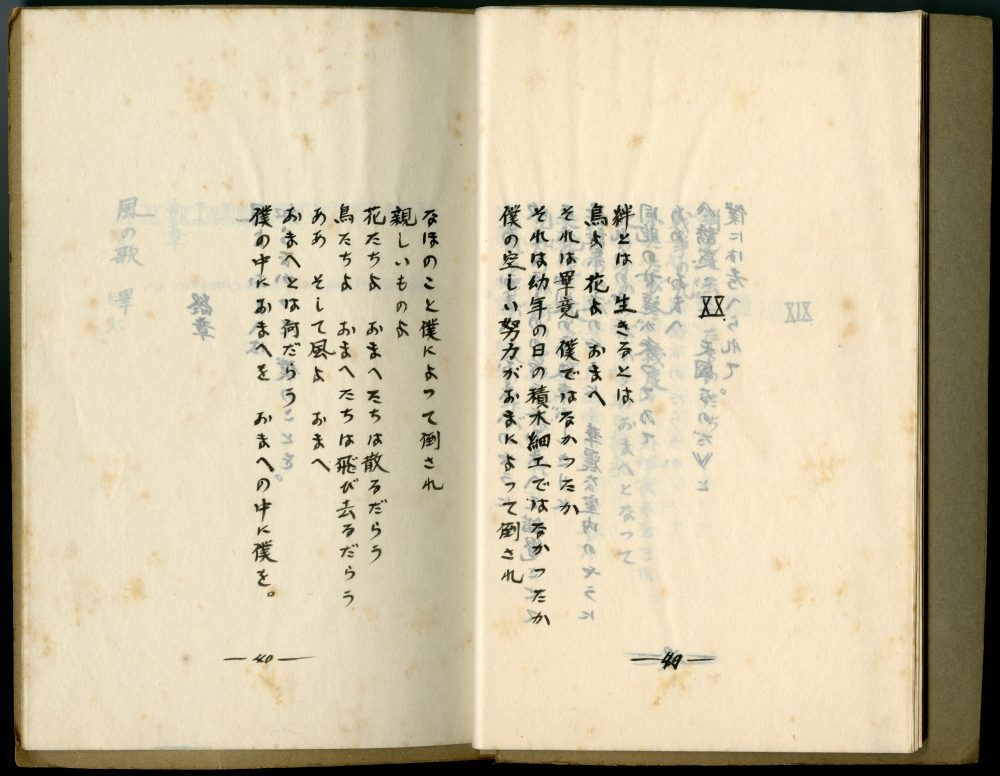 XX
絆とは 生きるとは
鳥よ 花よ おまへ
それは畢竟 僕ではなかつたか
それは幼年の日の積木細工ではなかつたか
僕の空しい努力がおまによつて倒され
— 49 —
なほのこと僕によつて倒され
親しいものよ
花たちよ おまへたちは散るだらう
鳥たちよ おまへたちは飛び去るだらう
ああ そして風よ おまへ
おまへとは何だらう
僕の中におまへを おまへの中に僕を。
— 40 —